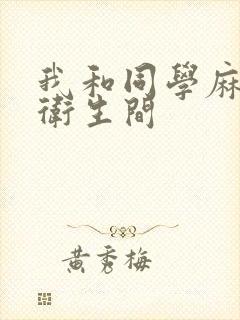 我和同學麻
衛生間
黃秀梅